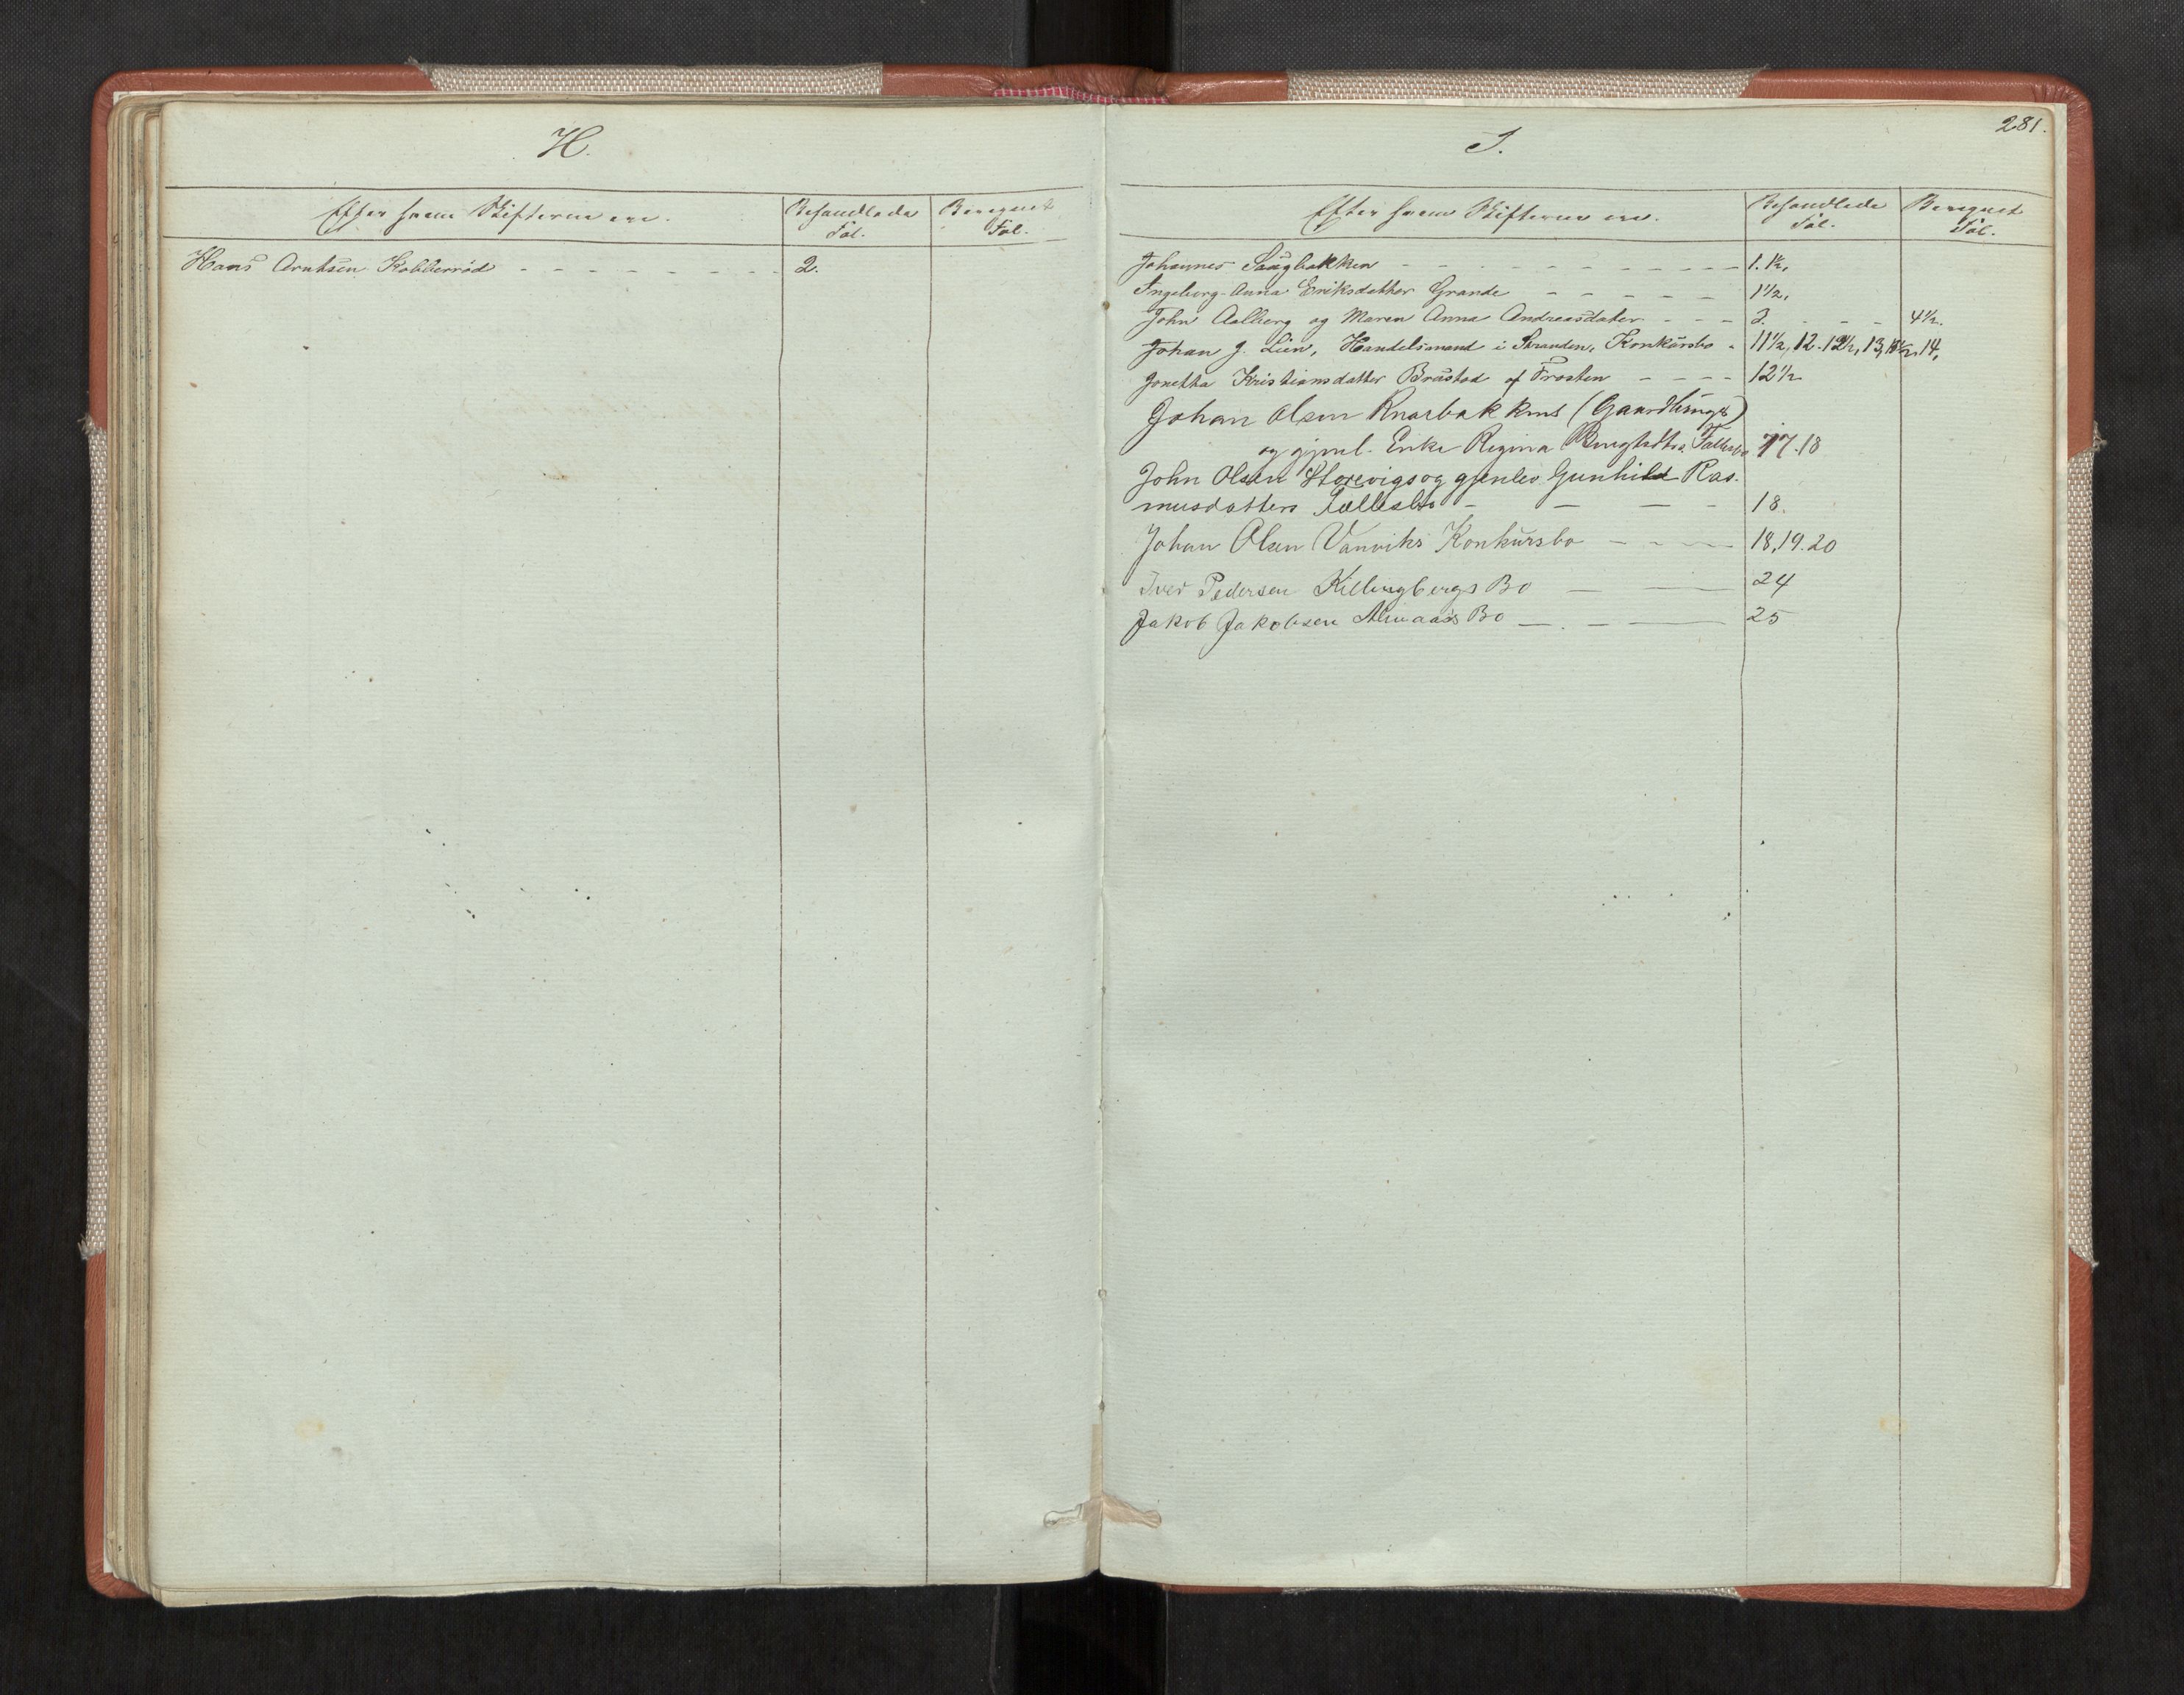 H.
Efter hvem Skifterne ere.
Behandlede Fol.
Beregnet Fol.
Hans Arntsen Kobberrød - - - - - - - - 2.
281.
I.
Efter hvem Skifterne ere.
Behandlede Fol.
Beregnet Fol.
Johannes Saugbakken - - - - - - - - - - 1. 1½,
Ingeborg-Anna Eriksdatter Grande - - - - - 1½,
John Aalberg og Maren Anna Andreasdater - - - 3. - - - 4½.
Johan J. Lien, Handelsmand i Stranden, Konkursbo - 11½, 12-12½, 13, 13½, 14,
Jonetta Kristiansdatter Brustad af Frosten - - - - 12½
Johan Olsen Knarbakkens (Gaardbruger)
og gjenl. Enke Regina Bengtsdtrs. Fællesbo 17.18
John Olsen Storevigs og gjenlev. Gunhild Ras-
musdatters Fællesbo - - - - 18.
Johan Olsen Vanviks Konkursbo - - - - 18,19.20
Iver Pedersen Killingbergs Bo — — 24
Jakob Jakobsen Almaas's Bo — . - — 25